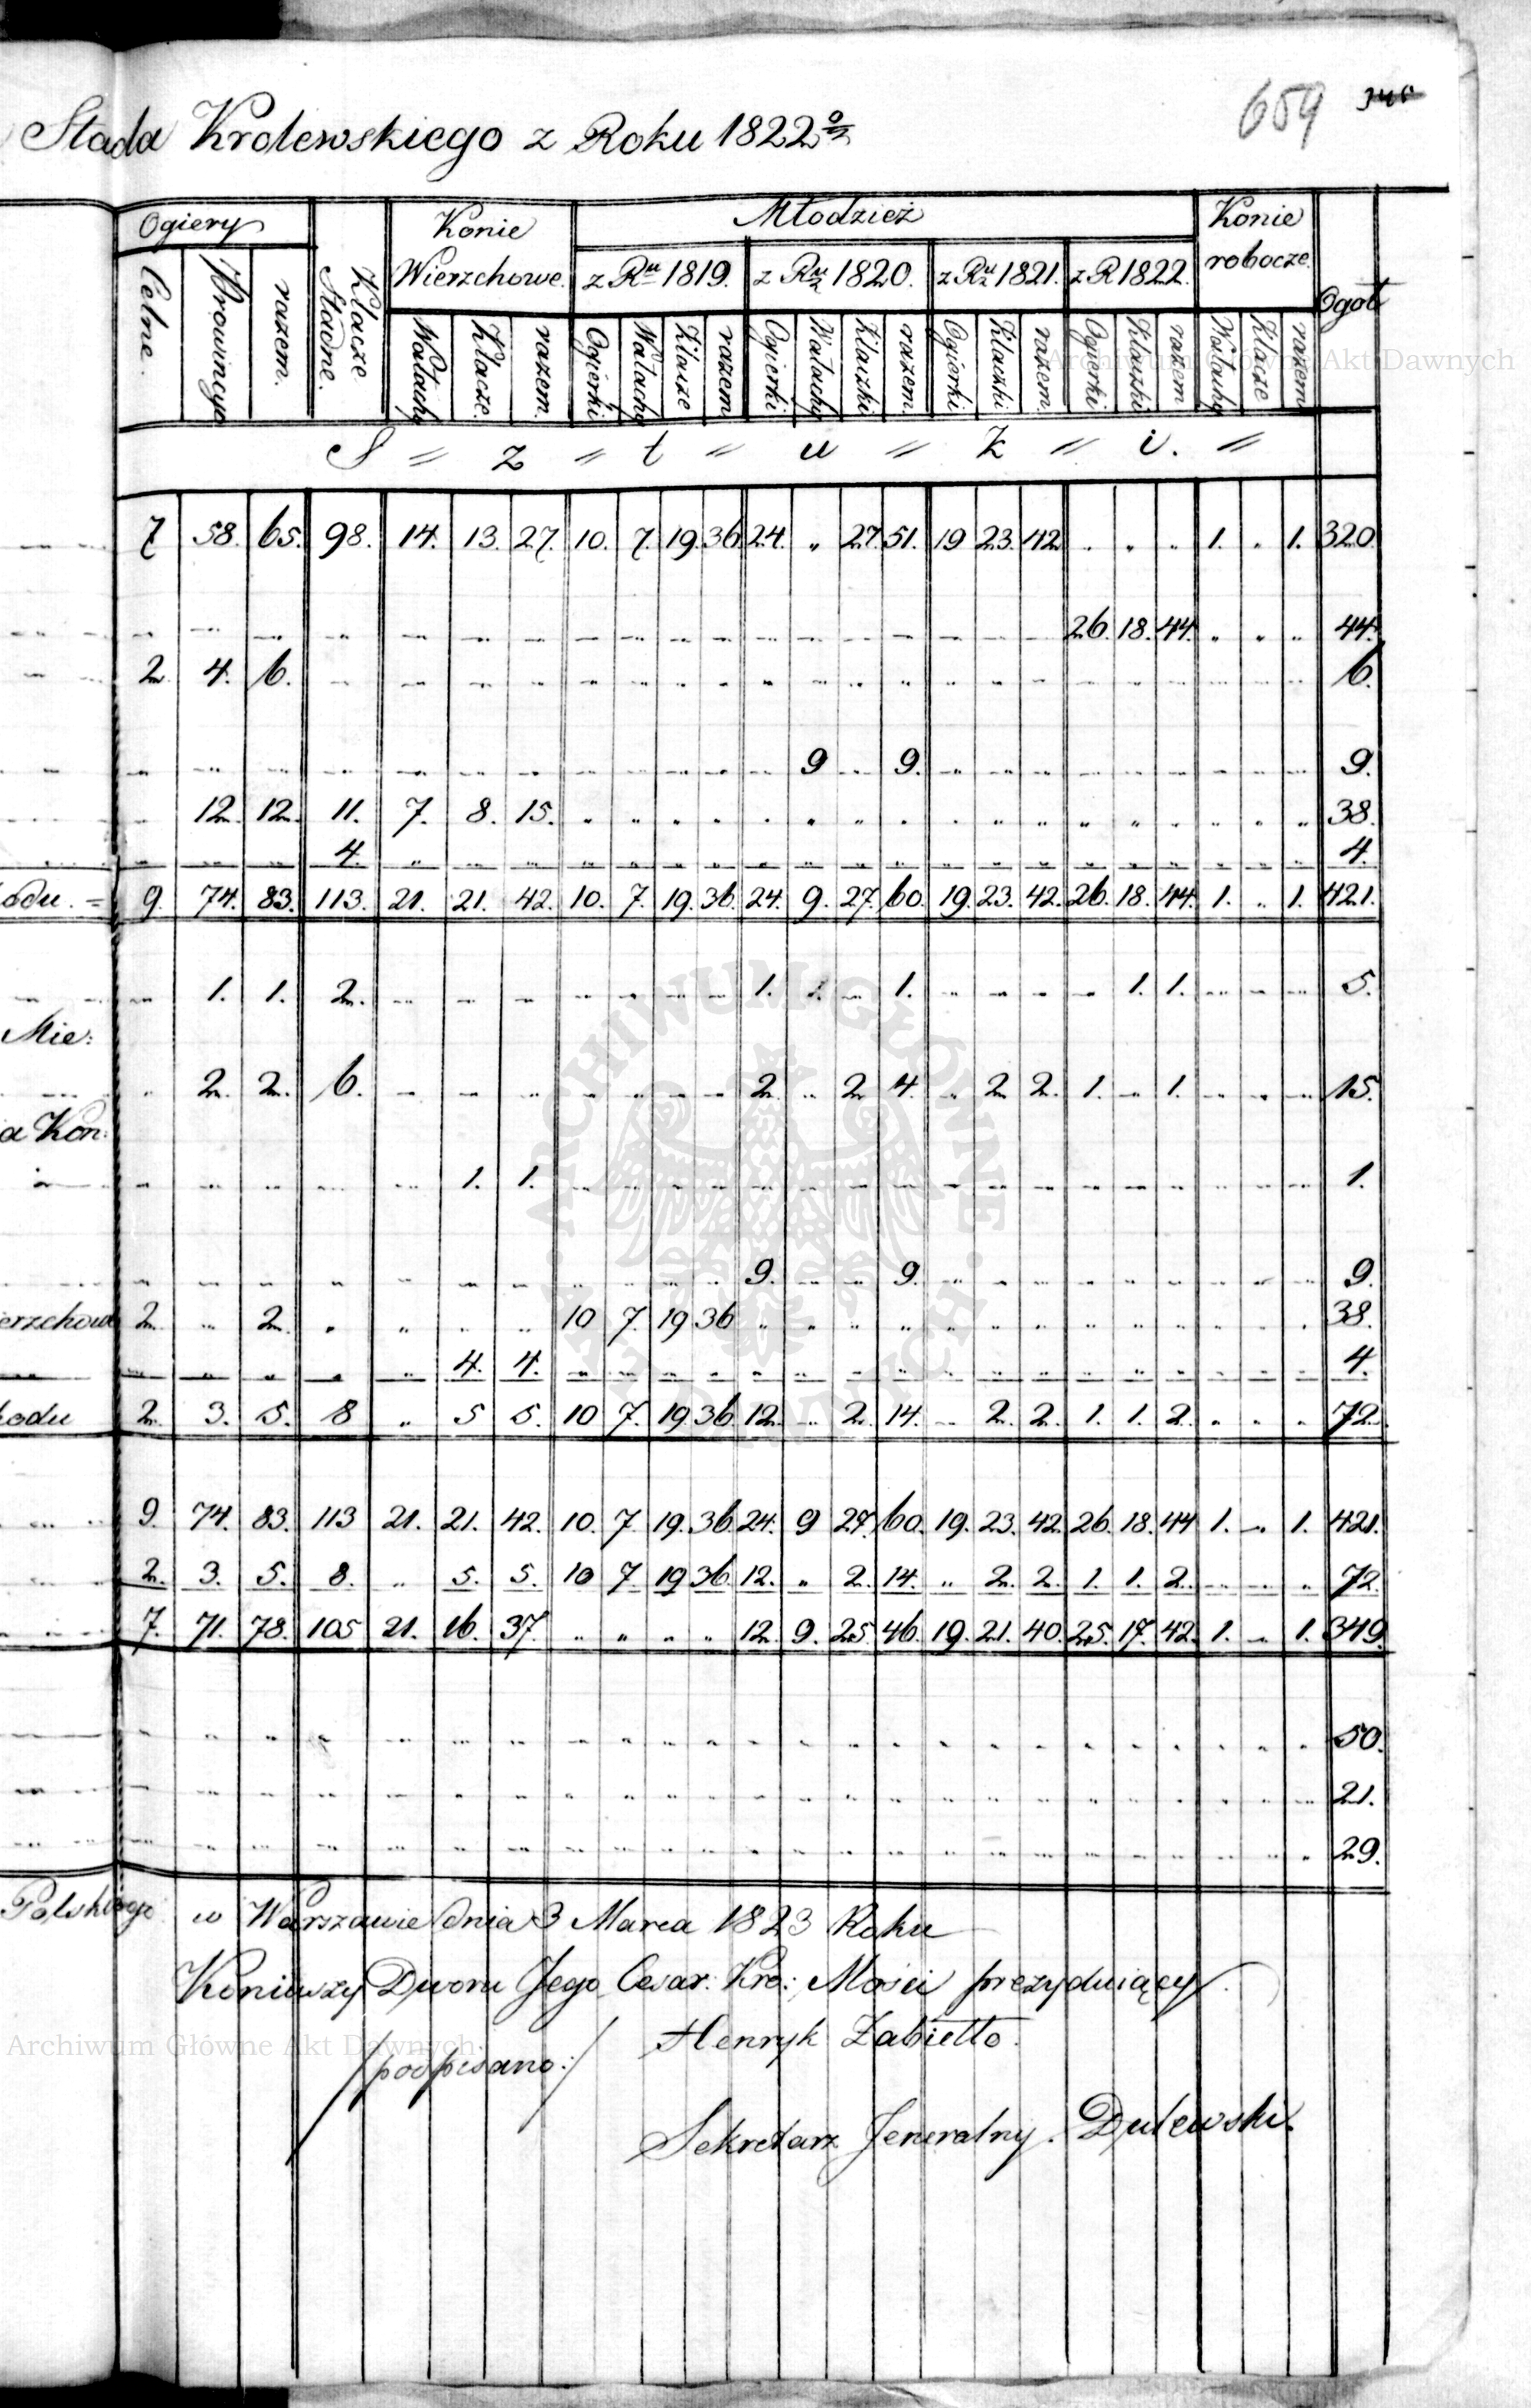 659 345
Stada Krolewskiego z Roku 1822º
Ogiery Klacze Stadne. Konie Wierzchowe. Młodzież Konie robocze. Ogoł
z Rᵘ 1819. z Rᵘ 1820. z Rᵘ 1821. z R 1822.
Celne. Prowincyo razem. Wałachy Klacze. razem. Ogierki Wałachy Klacze razem Ogierki Wałachy Klaczki razem. Ogierki Klaczki razem. Ogierki Klaczki razem Wałachy Klacze razem
S = z = t = u = k = i. =
7 58. 65. 98. 14. 13. 27. 10. 7. 19. 36 24. „ 27. 51. 19 23. 42 „ „ „ 1. „ 1. 320.
26. 18. 44. „ „ „ 44.
2. 4. 6. 6.
9 „ 9. 9.
12. 12. 11. 7. 8. 15. 38.
4. 4.
odu. = 9. 74. 83. 113. 21. 21. 42. 10. 7. 19. 36. 24. 9. 27. 60. 19. 23. 42. 26. 18. 44. 1. „ 1. 421.
1. 1. 2. 1. 1. 1. 1. 5.
Mie:
2. 2. 6. 2. „ 2. 4. „ 2. 2. 1. „ 1. 15.
a Kon:
1. 1. 1.
9. 9. 9.
erzchow 2. „ 2. 10 7. 19 36 38.
4. 4. 4.
hodu 2. 3. 5. 8 „ 5 5. 10 7. 19 36. 12. „ 2. 14. „ 2. 2. 1. 1. 2. „ „ „ 72.
9. 74. 83. 113 21. 21. 42. 10. 7. 19. 36. 24. 9 27. 60. 19. 23. 42. 26. 18. 44 1. „ 1. 421.
2. 3. 5. 8. „ 5. 5. 10 7 19 36. 12. „ 2. 14. „ 2. 2. 1. 1. 2. „ „ „ 72.
7. 71. 78. 105 21. 16. 37. „ „ „ „ 12. 9. 25. 46. 19. 21. 40. 25. 17. 42. 1. „ 1. 349.
50.
21.
29.
Polskiego w Warszawie dnia 3 Marca 1823 Roku
Koniuszy Dworu Jego Cesar. Kro: Mości prezyduiący
/podpisano:/ Henryk Zabiełło.
Sekretarz Jeneralny. Dulewski.
Archiwum Główne Akt Dawnych
Archiwum Główne Akt Dawnych
ARCHIWUM GŁÓWNE AKT DAWNYCH